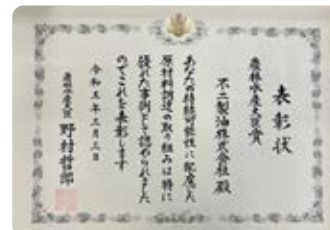 表彰状
農林水産大臣賞
不二製油株式会社殿
あなたの持続可能性に配慮した
原材料調達の取り組みは特に
優れた事例として認められました
のでこれを表彰します
令和五年三月三日
農林水産大臣 野村哲郎